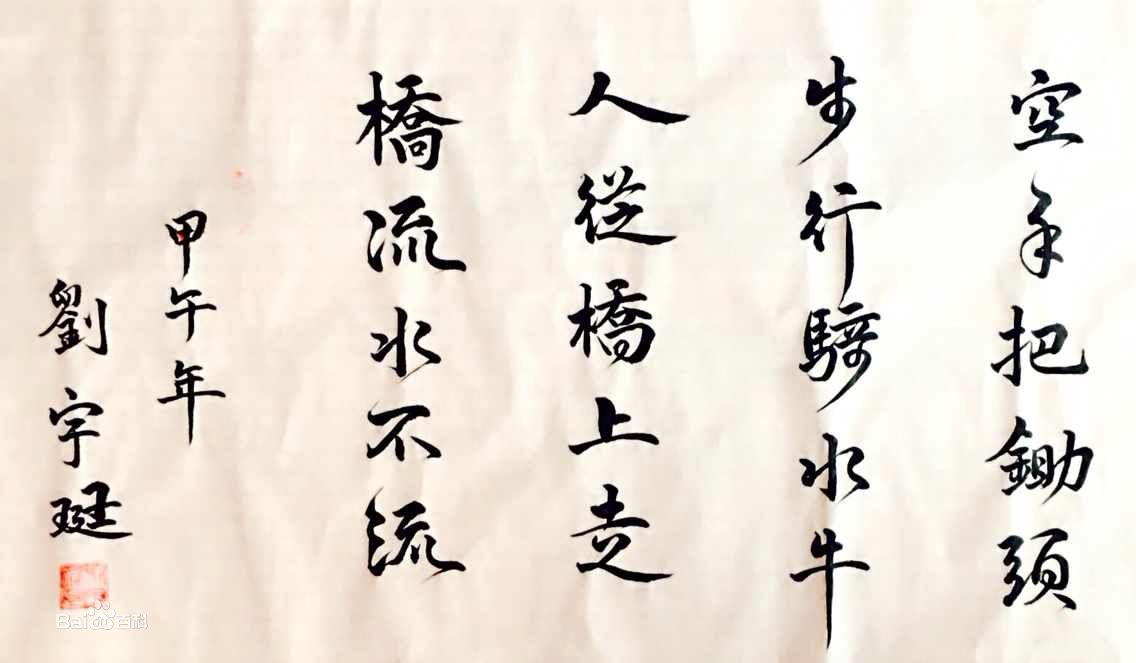 空手把鋤頭
步行騎水牛
人從橋上走
橋流水不流
甲午年
劉宇
Bai百科